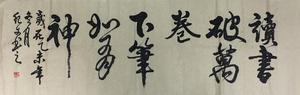 讀書
破萬
卷
下筆
如有
神
歲在乙未年